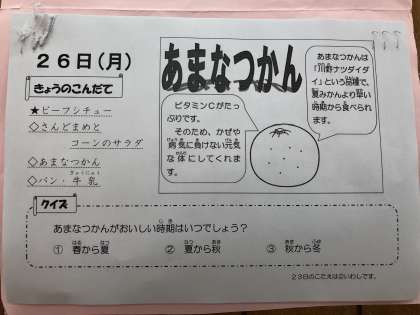 26日(月)
きょうのこんだて
★ビーフシチュー
◇さんどまめと
コーンのサラダ
◇あまなつかん
ぎゅうにゅう
◇パン・牛乳
あまなつかん
あまなつかんは
「川野ナツダイダ
イ」という品種で、
夏みかんより早い
時期から食べられ
ます。
ビタミンCがたっ
ぷりです。
そのため、かぜや
病気に負けない元気
な体にしてくれま
す。
クイズ
あまなつかんがおいしい時期はいつでしょう?
① 春から夏 ② 夏から秋 ③ 秋から冬
23日のこたえは②いわしです。